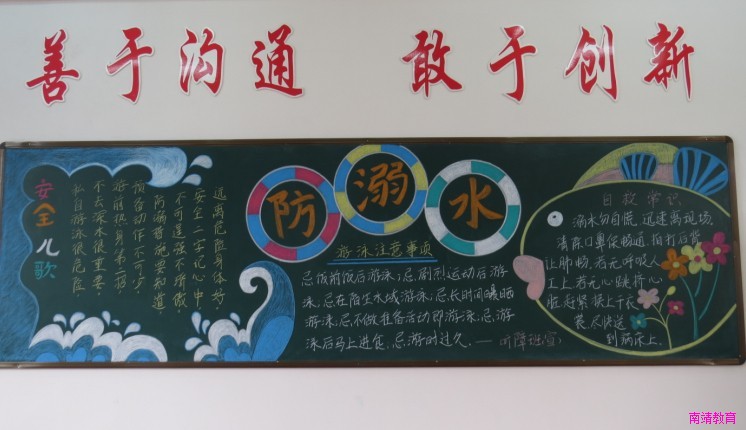 善于沟通 敢于创新
防溺水
安全儿歌
远离危险身体好，
安全二字记心中，
不可逞强不骄傲，
防溺措施要知道，
预备动作不可少，
游前热身第一招，
不去深水很重要，
私自游泳很危险，
游泳注意事项
忌饭前饭后游泳；忌剧烈运动后游
泳；忌在陌生水域游泳；忌长时间曝晒
游泳；忌不做准备活动即游泳；忌游
泳后马上进食；忌游时过久。——听障班宣
自救常识
溺水勿自慌，迅速离现场，
清除口鼻促畅通，拍打后背
让肺畅，若无呼吸人
工上，若无心跳挤心
脏，赶紧按上千
裳，尽快送
到病床上。
南靖教育